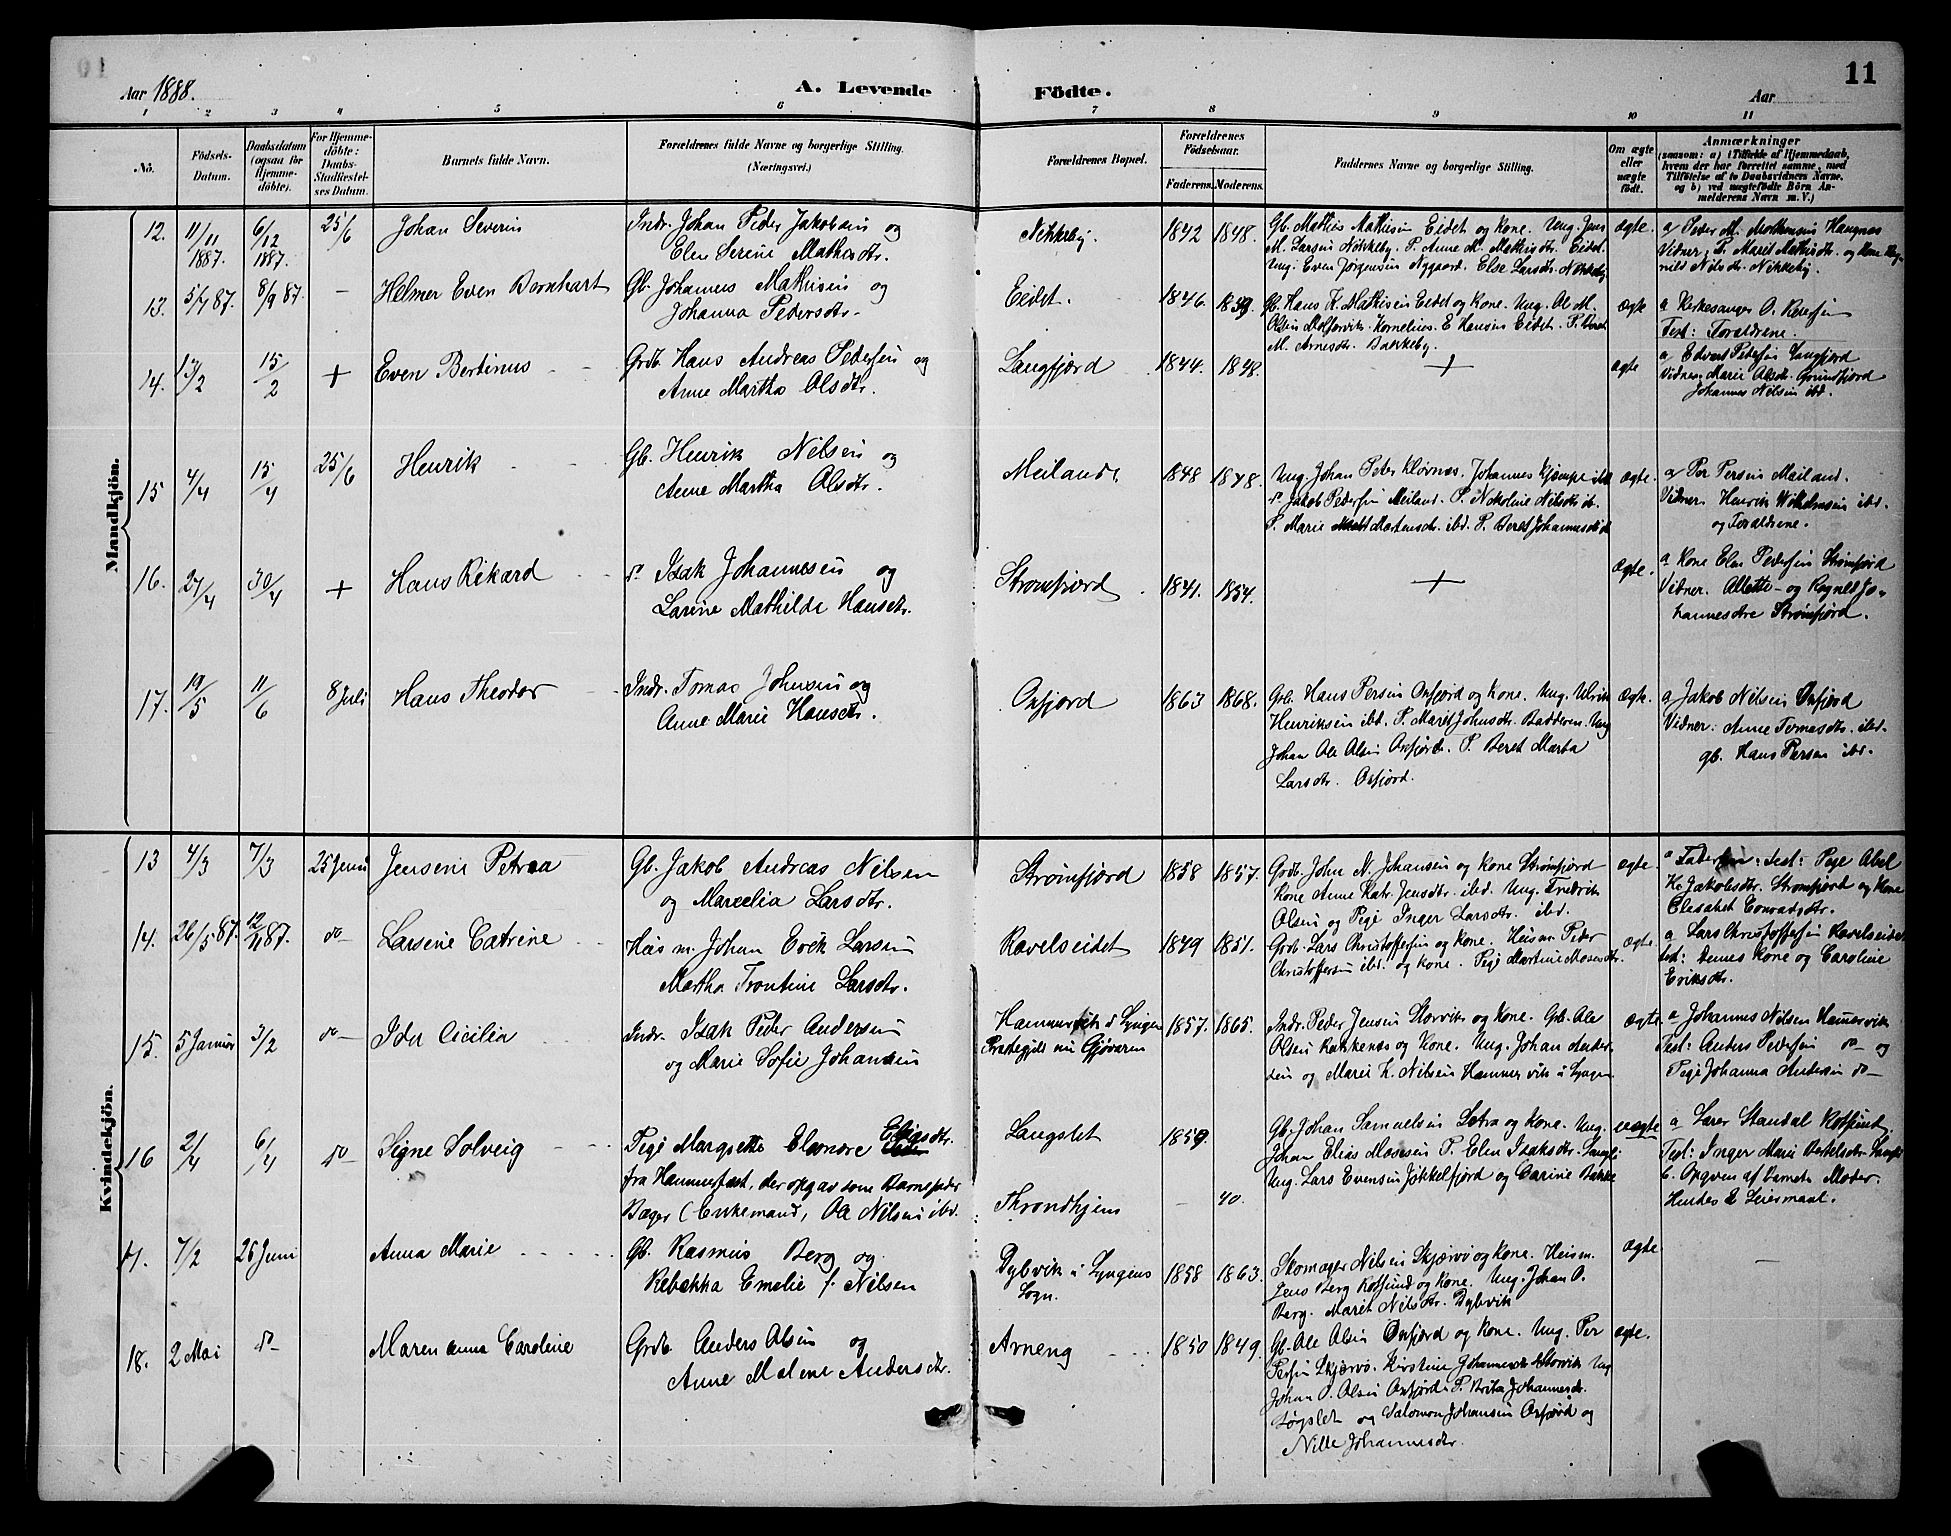 Aar 1888.
A. Levende
Födte.
Aar
11
1 2 3 4 5 6 7 8 9 10 11
No.
Födsels-
Datum.
Daabsdatum
(ogsaa for
Hjemme-
döbte).
For Hjemme-
döbte:
Daabs-
Stadfæstel-
ses Datum.
Barnets fulde Navn.
Forældrenes fulde Navne og borgerlige Stilling.
(Næringsvei.)
Forældrenes Bopæl.
Forældrenes
Födselsaar.
Faderens. Moderens.
Faddernes Navne og borgerlige Stilling.
Om ægte
eller
uægte
födt.
Anmærkninger
(saasom: a) i Tilfælde af Hjemmedaab,
hvem der har forrettet samme, med
Tilföielse af to Daabsvidners Navne,
og b) ved uægtefödte Börn An-
melderens Navn m. V.)
Mandkjön.
12. 11/11 1887. 6/12 1887. 25/6
Johan Severin
Indr. Johan Peder Jakobsen og
Elen Serine Mathisdtr.
Nikkeby.
1842 1848.
Gb. Mathis Mathisen Eidet og Kone. Ung. Jens
M. Larsen Nikkeby. P. Anne M. Mathisdtr. Eidet.
Ung. Even Jørgensen Nygaard. Else Larsdtr. Nikkeby
ægte.
a Peder M. Mathisen Haugnes
Vidner: P. Maret Mathisdtr. og Kone
Nilsdtr. Nikkeby.
13. 5/7 87. 8/9 87. –
Helmer Even Bernhart
Gb. Johannes Mathisen og
Johanna Pedersdtr.
Eidet.
1846 1839
Gb. Hans K. Mathisen Eidet og Kone. Ung. Ole M.
Olsen . Kornelius E Hansen Eidet. P. Beret
M. Arnesdtr. Bakkeby.
ægte
a Kirkesanger O.
Test: Forældrene.
14. 13/2 15/2 +
Even Bertinus
Grdb. Hans Andreas Pedersen og
Anne Martha Olsdtr.
Langfjord
1844. 1848.
+
ægte
a Edvart Pedersen Langfjord
Vidner. Marie Olsdtr. Grundfjord
Johannes Nilsen ibd.
15 4/4 15/4 25/6
Henrik
Gb. Henrik Nilsen og
Anne Martha Olsdtr.
Meiland.
1848 1848.
Ung. Johan Peter Klovnes. Johannes Kjempe ibd
Jakob Pedersen Meiland. P. Nikoline Nilsdtr ib.
P. Marie Mortensdtr. ibd. P. Beret Johannesdtr
ægte.
a Per Persen Meiland.
Vidner. Henrik Wilhelmsen ibd.
og Forældrene.
16. 27/4 30/4 +
Hans Rikard
Isak Johannesen og
Larine Mathilde Hansdtr.
Strømfjord.
1841. 1854.
+
ægte.
a Kone Elen Pedersen Strømfjord
Vidner. Alette – og Ragnild Jo-
hannesdtre Strømfjord.
17. 19/5 11/6 8 Juli
Hans Theodor
Indr. Tomas Johnsen og
Anne Marie Hansdtr.
Oxfjord
1863 1868.
Grb. Hans Persen Oxfjord og Kone. Ung. Ulrik
Henriksen ibd. P. Maret Johnsdtr. Badderen. Ung
Johan Ole Olsen Oxfjord. P. Beret Marta
Larsdtr. Oxfjord.
ægte.
a Jakob Nilsen Oxfjord
Vidner: Anne Tomasdtr. ibd.
gb. Hans Persen ibd.
Kvindekjön.
13 4/3 7/3 25 Juni
Jensine Petrea
Gb. Jakob Andreas Nilsen
og Marcelia Larsdtr.
Strømfjord
1858 1857.
Grdb. John N. Johansen og Kone Strømfjord
Kone Anne Katr. Jensdtr. ibd. Ung. Fredrik
Olsen og Pige Inger Larsdtr. ibd.
ægte
a Faderen: Test: Pige Abel
K. Jakobsdtr. Strømfjord og Kone
Elisabet Conradsdtr.
14. 26/5 87. 12/11 87. do–
Larsine Catrine
Huus m. Johan Erik Larsen
Martha Frontine Larsdtr.
Ravelseidet
1849 1851.
Grdb. Lars Christoffersen og Kone. Huusm Peder
Christoffersen ibd. og Kone. Pige Martine Mosesdtr.
ægte.
a Lars Christoffersen Ravelseidet
test: Dennes Kone og Caroline
Eriksdtr.
15. 5 Januar 3/2 do–
Ida Cicilia
Indr. Isak Peder Andersen
og Marie Sofie Johansen
Hammervik i Lyngen
Præstegjeld nu Gjøvaren
1857. 1865.
Indr. Peder Jensen Storvik og Kone. Gb. Ole
Olsen Rakkenæs og Kone. Ung. Johan Ander-
sen og Marie K. Nilsen Hammervik i Lyngen
ægte
a Johannes Nilsen Hamervik
Test: Anders Pedersen do– og
Pige Johanna Andersen do–
16 2/4 6/4 do–
Signe Solveig
Pige Margrethe Elenore Eliasdtr.
fra Hammerfest, der opgav som Barnefader
Bager (Enkemand, Ole Nilsen ibd.
Langslet
Throndhjem
1859.
– 40.
Gb. Johan Samuelsen Sotra og Kone. Ung.
Johan Elias Mosesen P. Elen Isaksdtr. Langsl
Ung. Lars Evensen Jøkkelfjord og Carine Bakke
uægte
a Lærer Standal Rotsund.
Test: Inger Marie Bertelsdtr. Langsl
b. Opgiven af Barnets Moder.
Hendes 2 Leiermaal.
17. 7/2 25 Juni
Anna Marie
Gb. Rasmus Berg og
Rebekka Emelie f. Nilsen
Dybvik i Lyngens
Sogn.
1858 1863.
Skomager Nilsen Skjærvø og Kone. Huusm.
Jens Berg Rotsund og Kone. Ung. Johan O.
Berg. Maret Nilsdtr. Dybvik
ægte
–
18. 2 Mai do–
Maren Anna Caroline
Grdb. Anders Olsen og
Anne Malene Andersdtr.
Arneng
1850 1849.
Gb. Ole Olsen Oxfjord og Kone. Ung. Per
Persen Skjærvø. Kirstine Johannesdtr Storvik Ung
Johan O. Olsen Oxfjord. P. Brita Johannesdr.
og Salomon Johansen Oxfjord og
Nille Johannesdtr.
ægte.